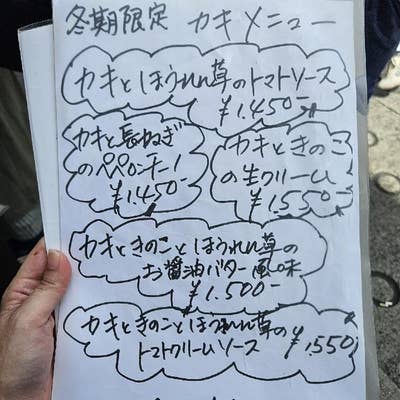 冬期限定 カキメニュー
カキとほうれん草のトマトソース
¥1.450-
カキと長ねぎ
のペペロンチーノ
¥1.450-
カキときのこ
の生クリーム
¥1.550-
カキときのことほうれん草の
お醤油バター風味
¥1.500-
カキときのことほうれん草の
トマトクリームソース ¥1.550